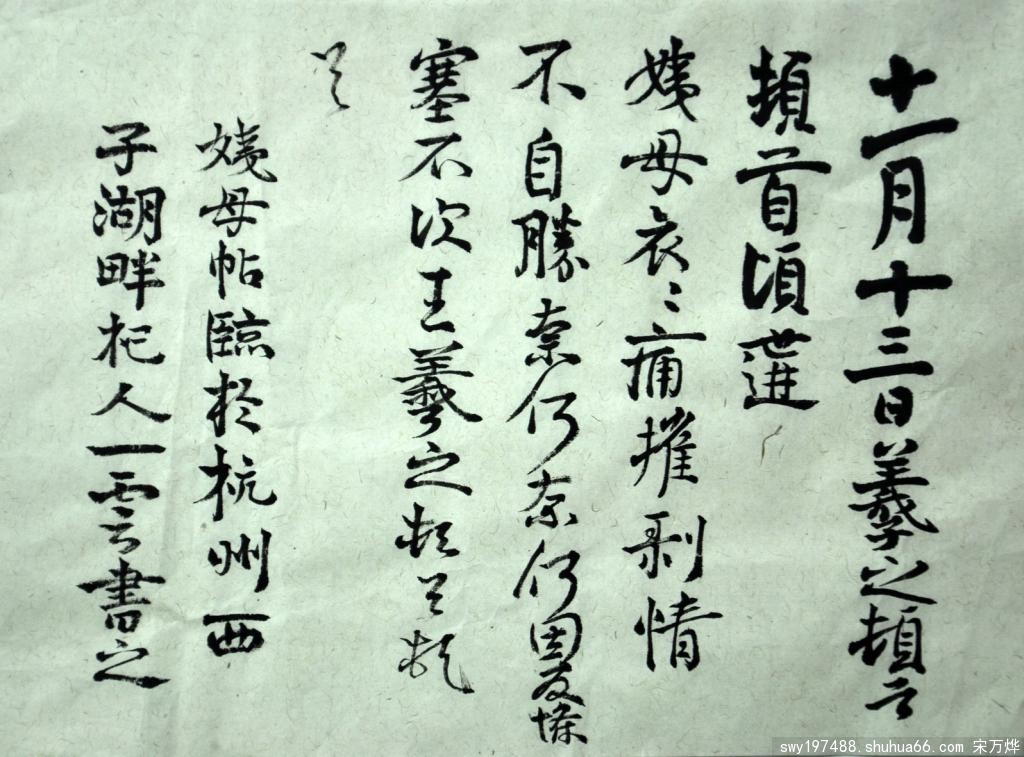 十一月十三日羲之頓首
頓首頃遘
姨母哀哀痛摧剥情
不自勝奈何奈何因反慘
塞不次王羲之頓首頓
首
姨母帖臨於杭州西
子湖畔杞人一雲書之
swy197488.shuhua66.com 宋万烨